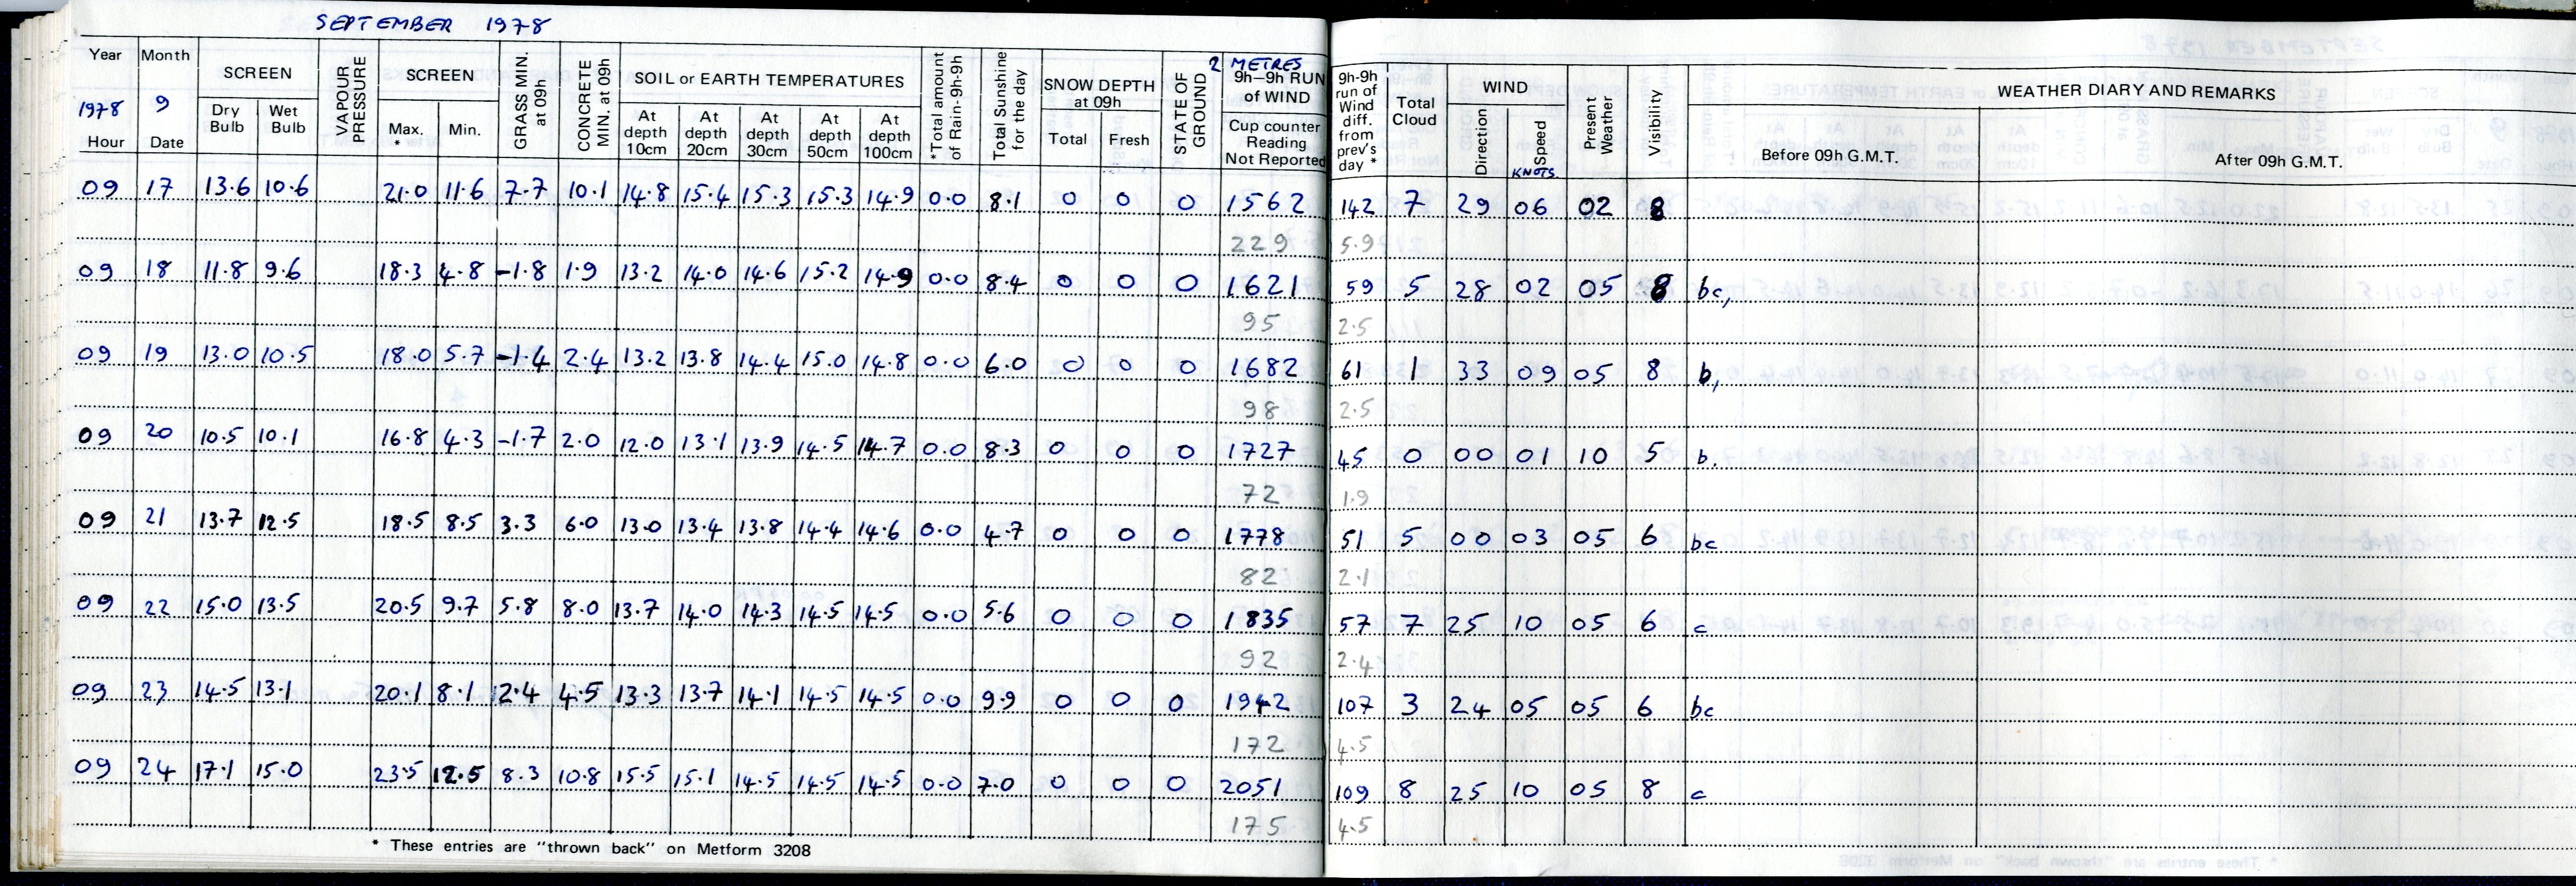 SEPTEMBER 1978
Year Month SCREEN VAPOUR PRESSURE SCREEN GRASS MIN. at 09h CONCRETE MIN. at 09h SOIL or EARTH TEMPERATURES *Total amount of Rain-9h-9h Total Sunshine for the day SNOW DEPTH at 09h STATE OF GROUND 2 METRES 9h—9h RUN of WIND 9h-9h run of Wind diff. from prev's day * Total Cloud WIND Present Weather Visibility WEATHER DIARY AND REMARKS
1978 9 Dry Bulb Wet Bulb Max. * Min. At depth 10cm At depth 20cm At depth 30cm At depth 50cm At depth 100cm Total Fresh Cup counter Reading Not Reported Direction Speed KNOTS Before 09h G.M.T. After 09h G.M.T.
Hour Date
09 17 13.6 10.6 21.0 11.6 7.7 10.1 14.8 15.4 15.3 15.3 14.9 0.0 8.1 0 0 0 1562 142 7 29 06 02 8
229 5.9
09 18 11.8 9.6 18.3 4.8 -1.8 1.9 13.2 14.0 14.6 15.2 14.9 0.0 8.4 0 0 0 1621 59 5 28 02 05 8 bc,
95 2.5
09 19 13.0 10.5 18.0 5.7 -1.4 2.4 13.2 13.8 14.4 15.0 14.8 0.0 6.0 0 0 0 1682 61 1 33 09 05 8 b,
98 2.5
09 20 10.5 10.1 16.8 4.3 -1.7 2.0 12.0 13.1 13.9 14.5 14.7 0.0 8.3 0 0 0 1727 45 0 00 01 10 5 b.
72 1.9
09 21 13.7 12.5 18.5 8.5 3.3 6.0 13.0 13.4 13.8 14.4 14.6 0.0 4.7 0 0 0 1778 51 5 00 03 05 6 bc
82 2.1
09 22 15.0 13.5 20.5 9.7 5.8 8.0 13.7 14.0 14.3 14.5 14.5 0.0 5.6 0 0 0 1835 57 7 25 10 05 6 c
92 2.4
09 23 14.5 13.1 20.1 8.1 2.4 4.5 13.3 13.7 14.1 14.5 14.5 0.0 9.9 0 0 0 1942 107 3 24 05 05 6 bc
172 4.5
09 24 17.1 15.0 23.5 12.5 8.3 10.8 15.5 15.1 14.5 14.5 14.5 0.0 7.0 0 0 0 2051 109 8 25 10 05 8 c
175 4.5
* These entries are "thrown back" on Metform 3208